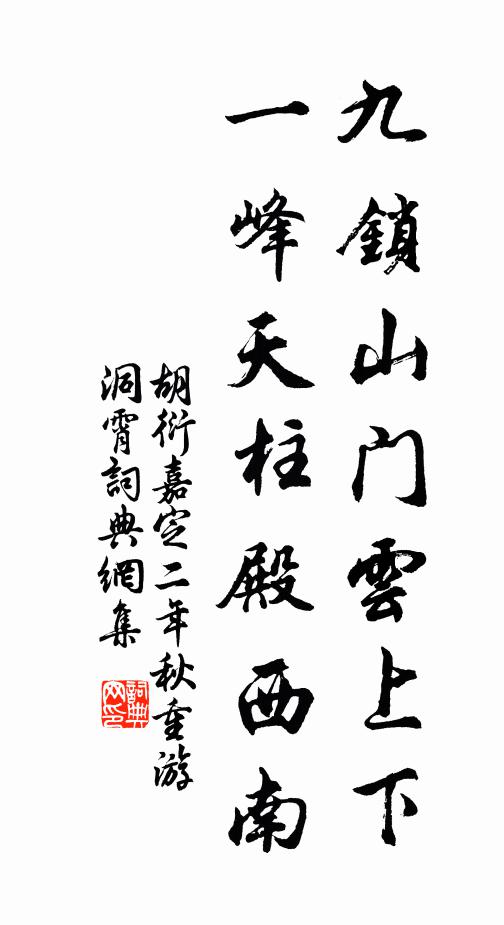 九鎖山门雲上下
一峰天柱殿西南
胡衍嘉定二年秋重游
洞霄詞典網集
詞典
网印